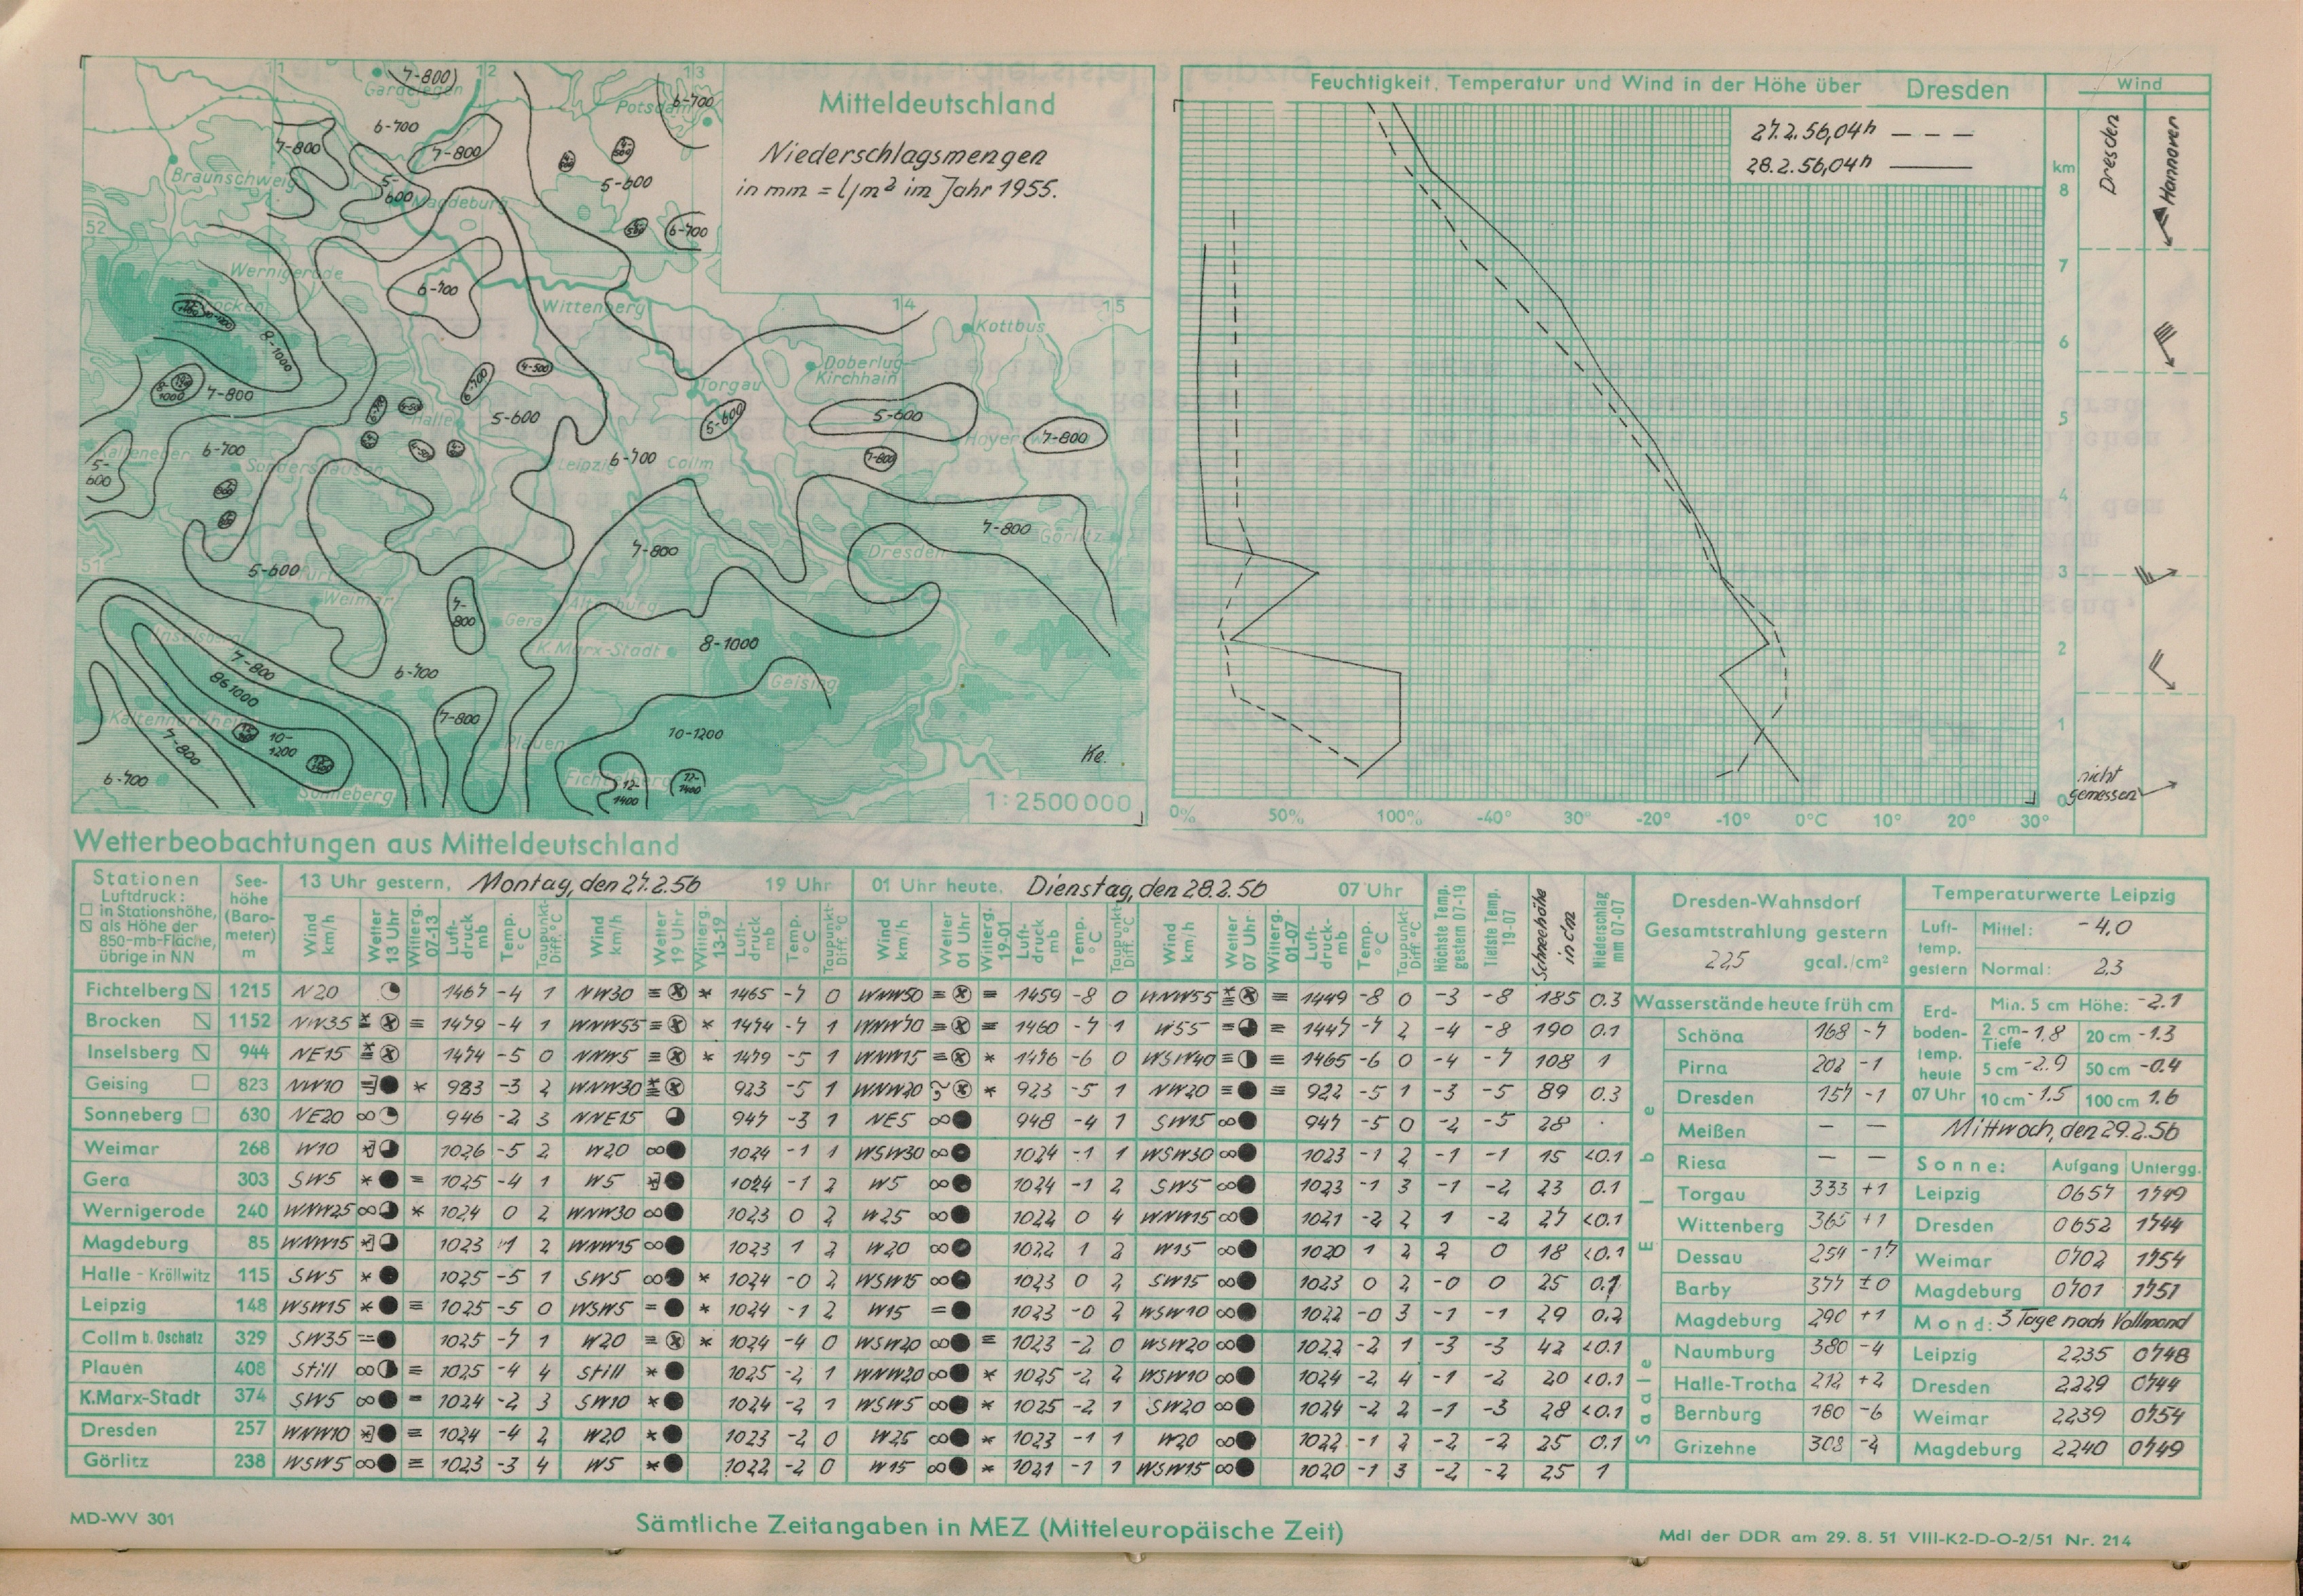 Mitteldeutschland
Niederschlagsmengen
in mm = l/m² im Jahr 1955.
11 12 13
52
14 15
51
7-800
Gardelegen
6-700
Potsdam
6-700
7-800
7-800
Braunschweig
5-600
5-600
Magdeburg
6-700
Wernigerode
6-700
Wittenberg
Brocken
8-1000
Kottbus
Doberlug-
Kirchhain
4-500
6-700
Torgau
7-800
5-600
5-600
5-600
Halle
Hoyersw
7-800
6-700
Sondershausen
Leipzig
6-700
Collm
7-800
5-600
7-800
7-800
Görlitz
Dresden
5-600
Weimar
7-800
Altenburg
Gera
K. Marx-Stadt
8-1000
Inselsberg
7-800
6-700
Geising
86 1000
Kaltennordheim
7-800
7-800
10-1200
10-1200
Plauen
6-700
Fichtelberg
12-1400
12-1400
Sonneberg
Ke.
1:2500000
Feuchtigkeit, Temperatur und Wind in der Höhe über Dresden
Wind
27.2.56,04h – – –
28.2.56,04h ———
Dresden
Hannover
km
8
7
6
5
4
3
2
1
0
nicht
gemessen
0% 50% 100% -40° 30° -20° -10° 0°C 10° 20° 30°
Wetterbeobachtungen aus Mitteldeutschland
Stationen
Luftdruck:
in Stationshöhe,
als Höhe der
850-mb-Fläche,
übrige in NN
See-
höhe
(Baro-
meter)
m
13 Uhr gestern, Montag, den 27.2.56 19 Uhr
01 Uhr heute, Dienstag, den 28.2.56 07 Uhr
Wind km/h Wetter 13 Uhr Witterg. 07-13 Luft-druck mb Temp. °C Taupunkt-Diff. °C
Wind km/h Wetter 19 Uhr Witterg. 13-19 Luft-druck mb Temp. °C Taupunkt-Diff. °C
Wind km/h Wetter 01 Uhr Witterg. 19-01 Luft-druck mb Temp. °C Taupunkt-Diff. °C
Wind km/h Wetter 07 Uhr Witterg. 01-07 Luft-druck- mb Temp. °C Taupunkt-Diff. °C
Höchste Temp. gestern 07-19
Tiefste Temp. 19-07
Schneehöhe in cm
Niederschlag mm 07-07
Fichtelberg 1215 N20 1467 -4 1 NW30 1465 -7 0 WNW50 1459 -8 0 WNW55 1449 -8 0 -3 -8 185 0.3
Brocken 1152 NW35 1479 -4 1 WNW55 1474 -7 1 WNW70 1460 -7 1 W55 1447 -7 2 -4 -8 190 0.1
Inselsberg 944 NE15 1474 -5 0 NNW5 1479 -5 1 WNW15 1476 -6 0 WSW40 1465 -6 0 -4 -7 108 1
Geising 823 NW10 983 -3 2 WNW30 923 -5 1 WNW20 923 -5 1 NW20 922 -5 1 -3 -5 89 0.3
Sonneberg 630 NE20 946 -2 3 NNE15 947 -3 1 NE5 948 -4 1 SW15 947 -5 0 -2 -5 28 .
Weimar 268 W10 1026 -5 2 W20 1024 -1 1 WSW30 1024 -1 1 WSW30 1023 -1 2 -1 -1 15 <0.1
Gera 303 SW5 1025 -4 1 W5 1024 -1 2 W5 1024 -1 2 SW5 1023 -1 3 -1 -2 23 0.1
Wernigerode 240 WNW25 1024 0 2 WNW30 1023 0 2 W25 1022 0 4 WNW15 1021 -2 2 1 -2 27 <0.1
Magdeburg 85 WNW15 1023 1 2 WNW15 1023 1 2 W20 1022 1 2 W15 1020 1 2 2 0 18 <0.1
Halle - Kröllwitz 115 SW5 1025 -5 1 SW5 1024 -0 2 WSW15 1023 0 2 SW15 1023 0 2 -0 0 25 0.1
Leipzig 148 WSW15 1025 -5 0 WSW5 1024 -1 2 W15 1023 -0 2 WSW10 1022 -0 3 -1 -1 29 0.2
Collm b. Oschatz 329 SW35 1025 -7 1 W20 1024 -4 0 WSW20 1023 -2 0 WSW20 1022 -2 1 -3 -3 42 <0.1
Plauen 408 Still 1025 -4 4 Still 1025 -2 1 WNW20 1025 -2 2 WSW10 1024 -2 4 -1 -2 20 <0.1
K.Marx-Stadt 374 SW5 1024 -2 3 SW10 1024 -2 1 WSW5 1025 -2 1 SW20 1024 -2 2 -1 -3 28 <0.1
Dresden 257 WNW10 1024 -4 2 W20 1023 -2 0 W25 1023 -1 1 W20 1022 -1 2 -2 -2 25 0.1
Görlitz 238 WSW5 1023 -3 4 W5 1022 -2 0 W15 1021 -1 1 WSW15 1020 -1 3 -2 -2 25 1
Dresden-Wahnsdorf
Gesamtstrahlung gestern
225 gcal./cm²
Wasserstände heute früh cm
Elbe
Schöna 168 -7
Pirna 202 -1
Dresden 157 -1
Meißen — —
Riesa — —
Torgau 333 +1
Wittenberg 365 +1
Dessau 254 -17
Barby 377 ±0
Magdeburg 290 +1
Saale
Naumburg 380 -4
Halle-Trotha 212 +2
Bernburg 180 -6
Grizehne 308 -2
Temperaturwerte Leipzig
Luft-
temp.
gestern
Mittel: -4,0
Normal: 2,3
Erd-
boden-
temp.
heute
07 Uhr
Min. 5 cm Höhe: -2.1
2 cm Tiefe -1,8 20 cm -1.3
5 cm -2.9 50 cm -0.4
10 cm -1.5 100 cm 1.6
Mittwoch, den 29.2.56
Sonne: Aufgang Untergg.
Leipzig 0657 1749
Dresden 0652 1744
Weimar 0702 1754
Magdeburg 0701 1751
Mond: 3 Tage nach Vollmond
Leipzig 2235 0748
Dresden 2229 0744
Weimar 2239 0754
Magdeburg 2240 0749
MD-WV 301
Sämtliche Zeitangaben in MEZ (Mitteleuropäische Zeit)
MdI der DDR am 29. 8. 51 VIII-K2-D-O-2/51 Nr. 214